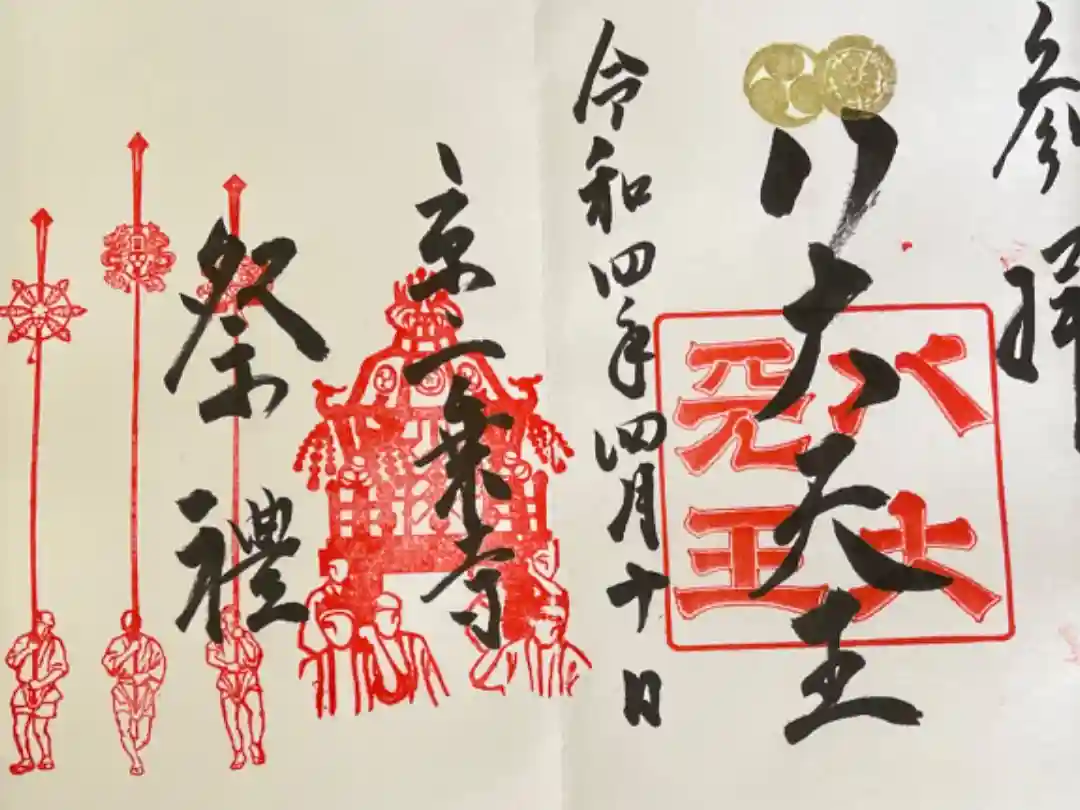 参拝
八大天王
八大
天王
令和四年四月十日
京一乗寺
祭禮